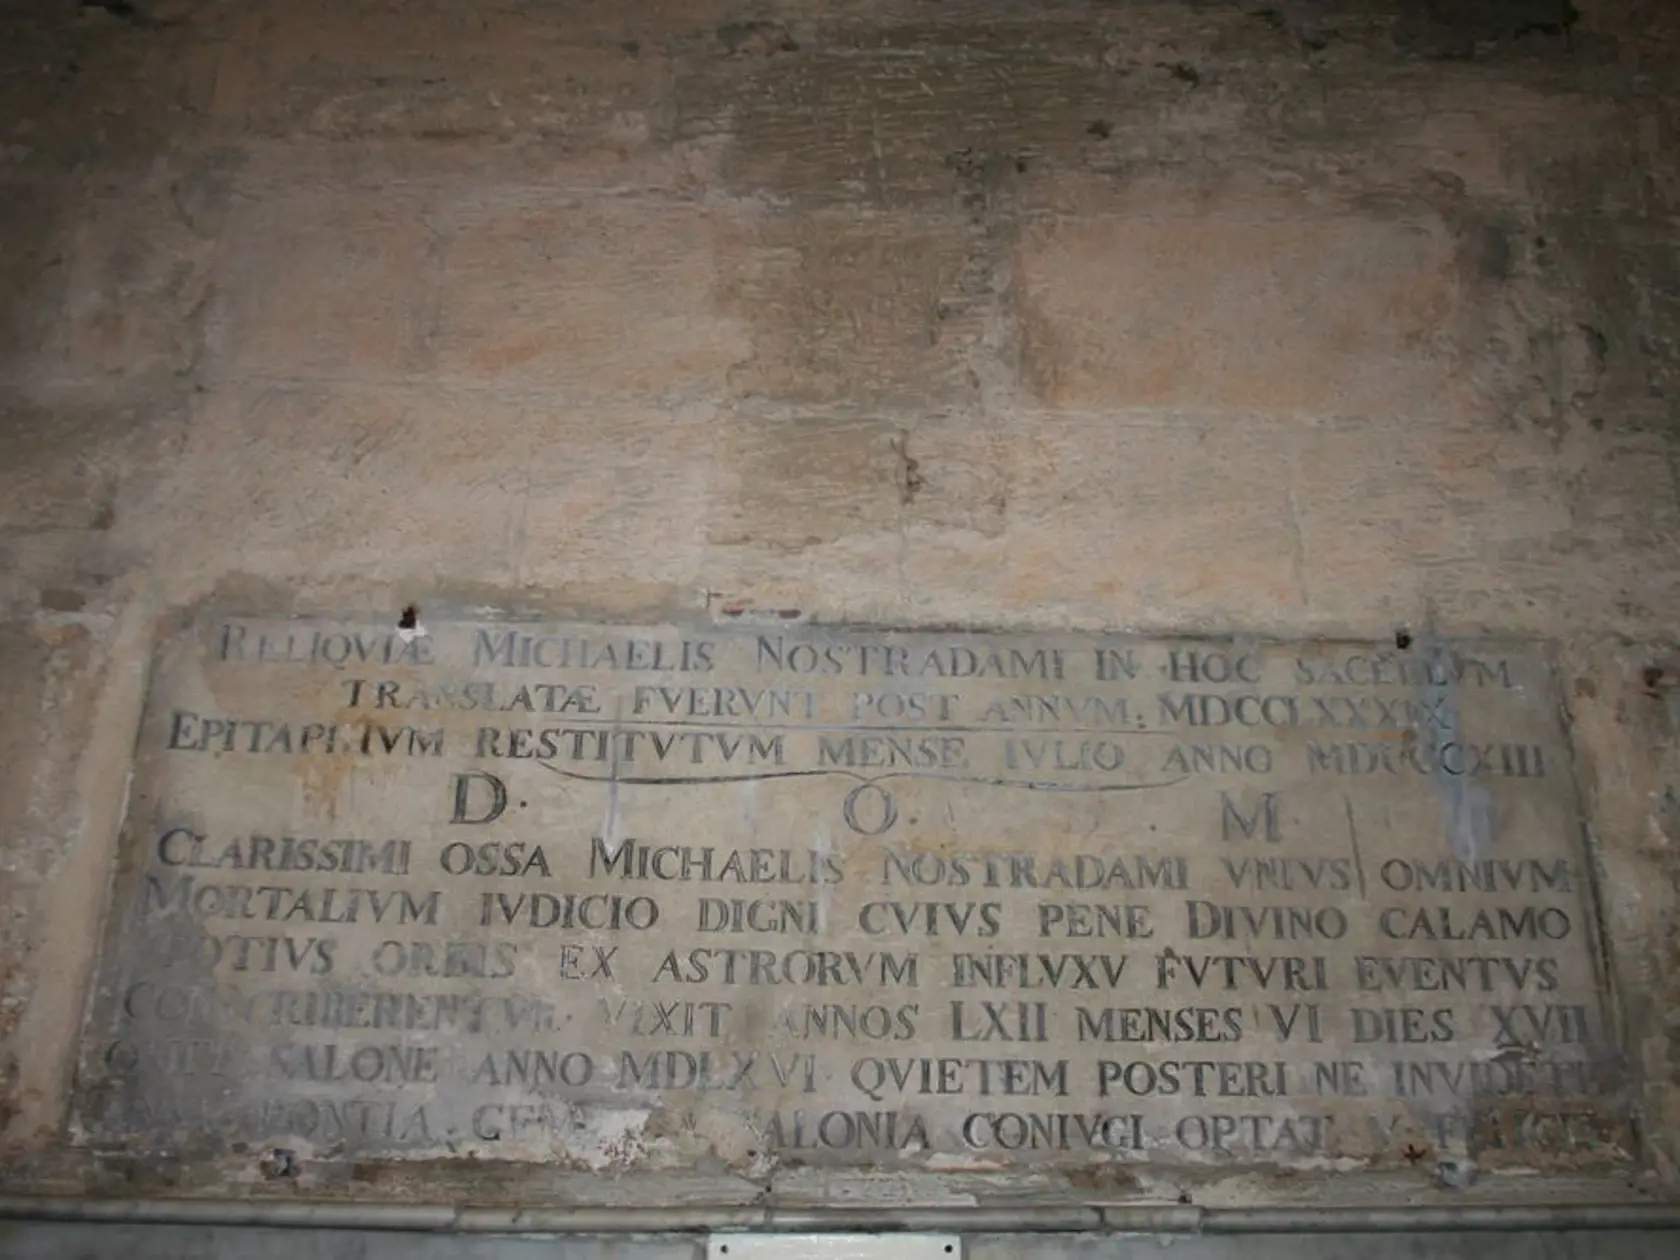 RELIQVIÆ MICHAELIS NOSTRADAMI IN HOC SACELLVM
TRANSLATÆ FVERVNT POST ANNVM. MDCCLXXXIX
EPITAPHIVM RESTITVTVM MENSE IVLIO ANNO MDCCCXIII
D. O. M.
CLARISSIMI OSSA MICHAELIS NOSTRADAMI VNIVS OMNIVM
MORTALIVM IVDICIO DIGNI CVIVS PENE DIVINO CALAMO
TOTIVS ORBIS EX ASTRORVM INFLVXV FVTVRI EVENTVS
CONSCRIBERENTVR. VIXIT ANNOS LXII MENSES VI DIES XVII
OBIIT SALONE ANNO MDLXVI QVIETEM POSTERI NE INVIDETE
PONTIA GEM SALONIA CONIVGI OPTAT V FELICIT